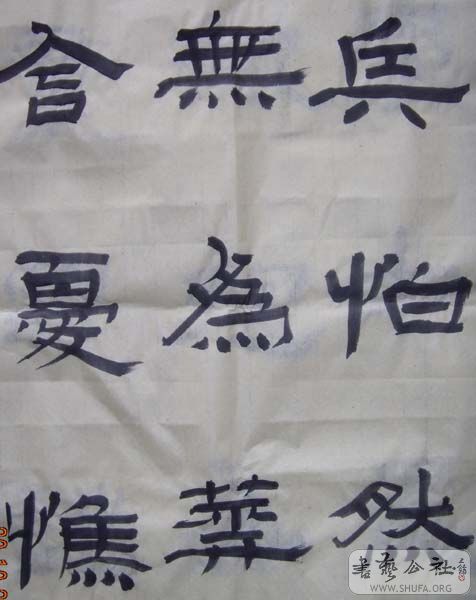 兵怕然
無為
含憂憔
書藝公社
WWW.SHUFA.ORG